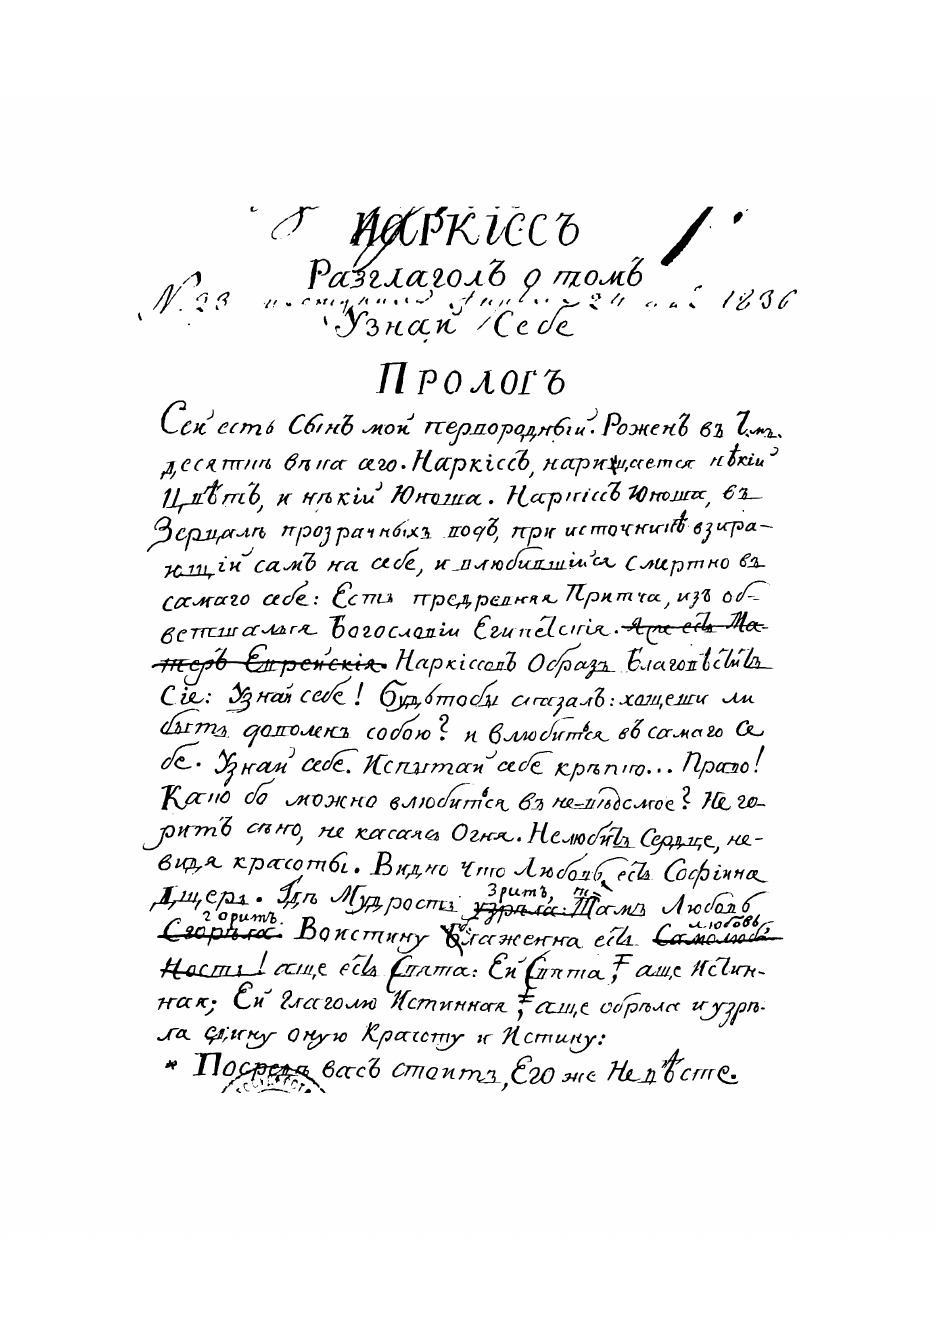 НАРКІССЪ
Разглаголъ о томъ
N. 23 24 1836
Узнай Себе
ПРОЛОГЪ
Сей есть Сынъ мой первородный. Роженъ въ
десятиѣ вѣка сего. Наркіссъ, нарицается нѣкій
Цвѣтъ, и нѣкій Юноша. Наркіссъ Юноша, въ
Зерцалѣ прозрачныхъ водъ, при источникѣ взира-
ющій самъ на себе, и влюбившійся смертно въ
самаго себе: Есть предревняя Притча, изъ об-
ветшалыя Богословіи Египетскія. Яже есть Ма-
терь Еврейскія. Наркіссовъ Образъ Благовѣститъ
Сіе: Узнай себе! Будьтобы сказалъ: хощеши ли
быть доволенъ собою? и влюбится въ самаго Се
бе. Узнай себе. Испытай себе крѣпко... Право!
Како бо можно влюбится въ не-вѣдомое? Не го-
ритъ сѣно, не касаясь Огня. Нелюбитъ Сердце, не-
видя красоты. Видно что Любовь есть Софіина
Зритъ, т
Дщерь. Гдѣ Мудрость узрѣла: Тамъ Любовь
горитъ. любовь,
Сгорѣла. Воистину Блаженна есть Самолюб-
ность! аще есть Свята: Ей Свята, аще Истин-
ная; Ей глаголю Истинная, аще обрѣла и узрѣ-
ла едину оную Красоту и Истину:
* Посредѣ васъ стоитъ, Его же Не вѣсте.